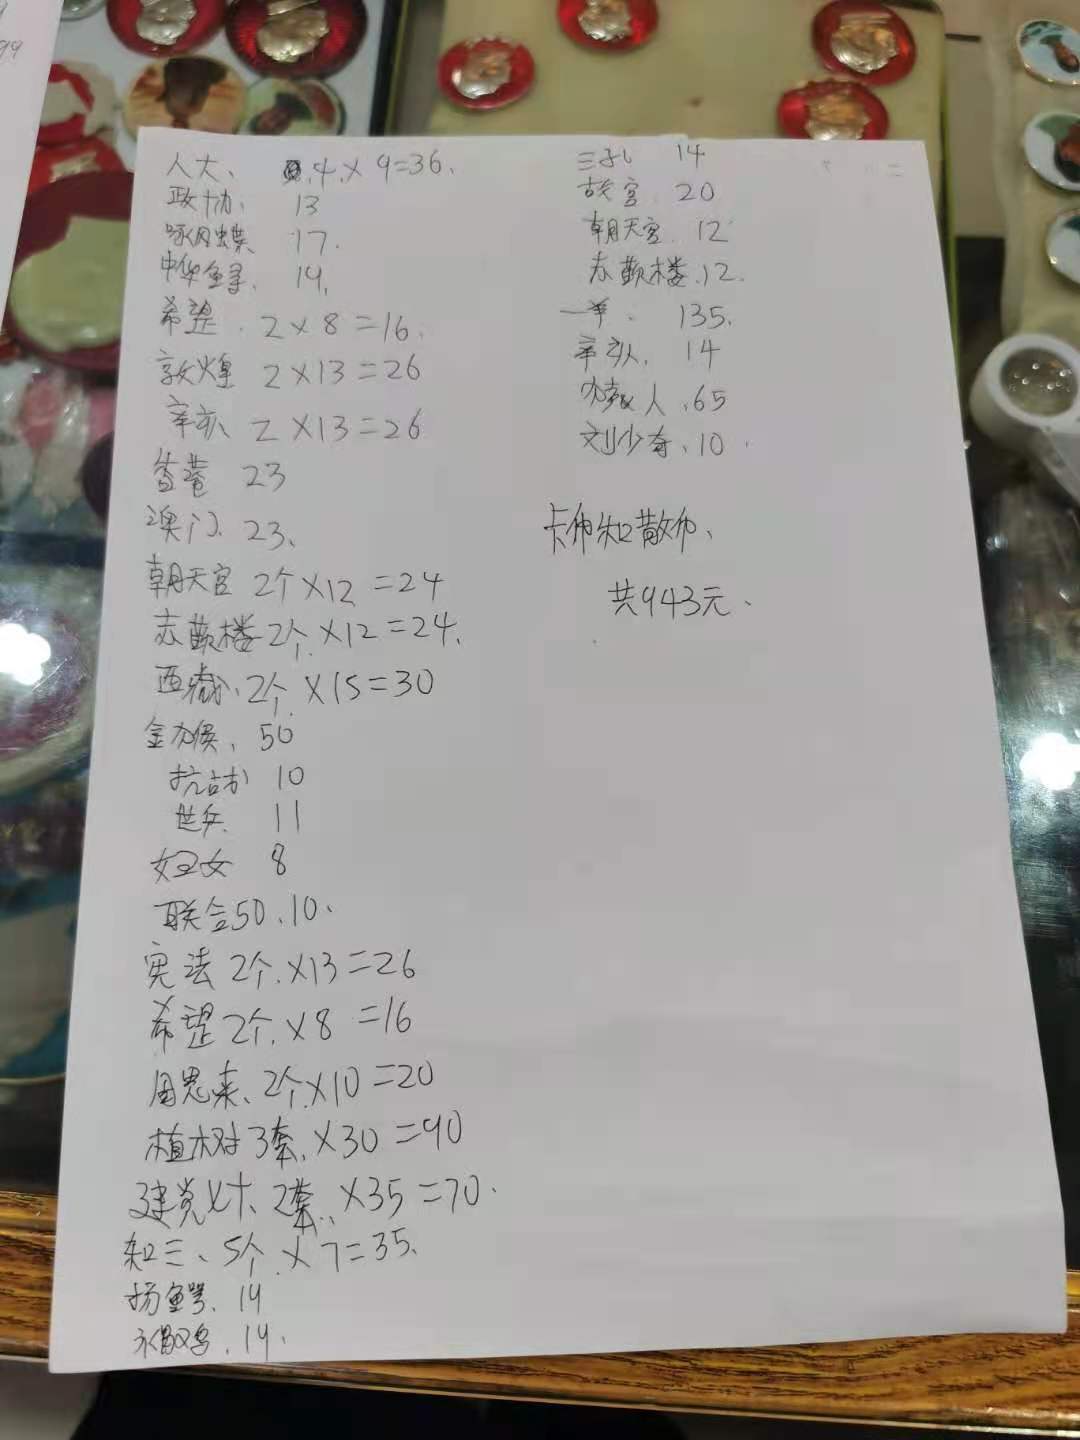 99
人大、 4.×9=36.
政协、 13
啄 蝶 17.
中华鲟. 14.
希望. 2×8=16.
敦煌 2×13=26
辛亥、 2×13=26
香港 23
澳门. 23、
朝天宫 2个×12=24
赤嵌楼 2个.×12=24.
西藏、2个×15=30
金 猴、50
抗战 10
世乒. 11
妇女 8
联合50、10、
宪法 2个.×13=26
希望 2个.×8=16
周恩来、2个×10=20
植树 3套.×30=90
建党七十、2套.×35=70.
和三、5个.×7=35.
扬鳄. 14
14.
三孔 14
故宫. 20
朝天宫. 12
赤嵌楼.12.
一羊. 135.
辛亥. 14
人.65
刘少奇、10.
卡币和散币、
共943元.